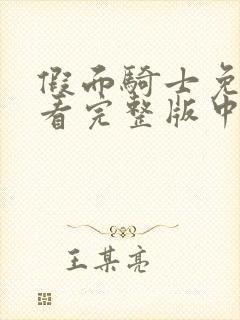 假而騎士免
看完整版中
王某亮